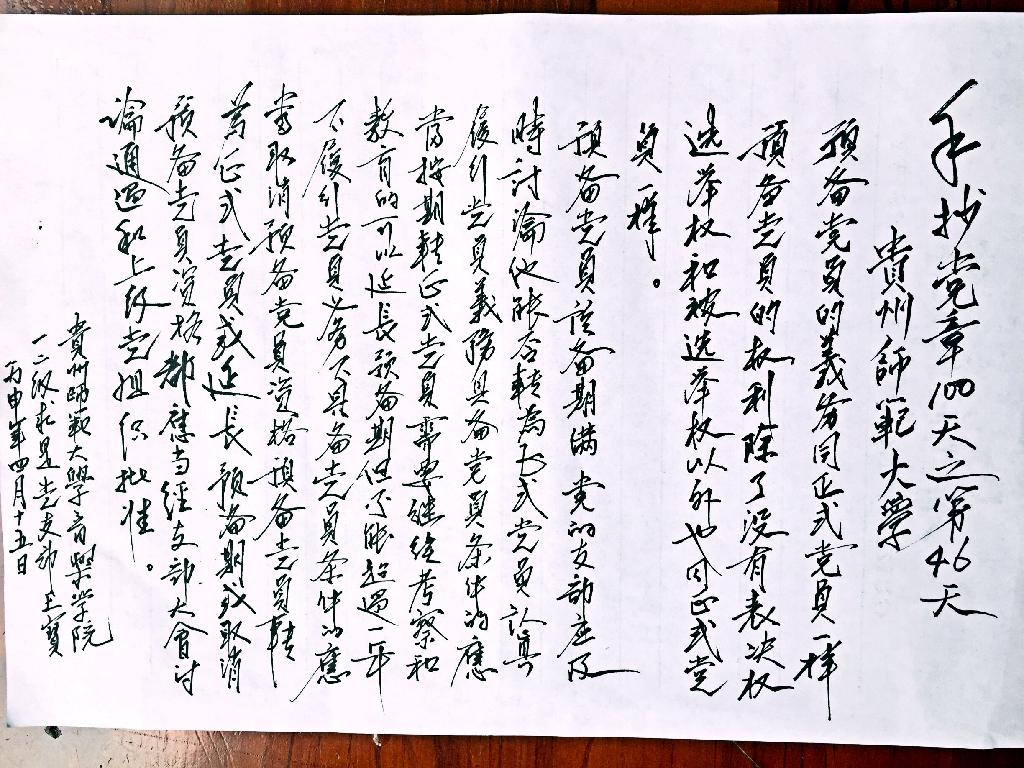 手抄党章100天之第46天
貴州師範大學
預备党員的義务同正式党員一样
預备党員的权利除了没有表决权
选举权和被选举权以外也同正式党
員一样。
預备党員預备期满党的支部应及
時討論他能否轉為正式党員认真
履行党員義務具备党員条件的應
當按期轉正式党員需要继续考察和
教育的可以延長預备期但不能超過一年
不履行党員义务不具备党員条件的應
當取消預备党員资格預备党員轉
為正式党員或延長預备期或取消
預备党員資格都應当經支部大會讨
論通過和上级党组织批准。
貴州師範大學音樂學院
一二级求是党支部王寶
丙申年四月十五日